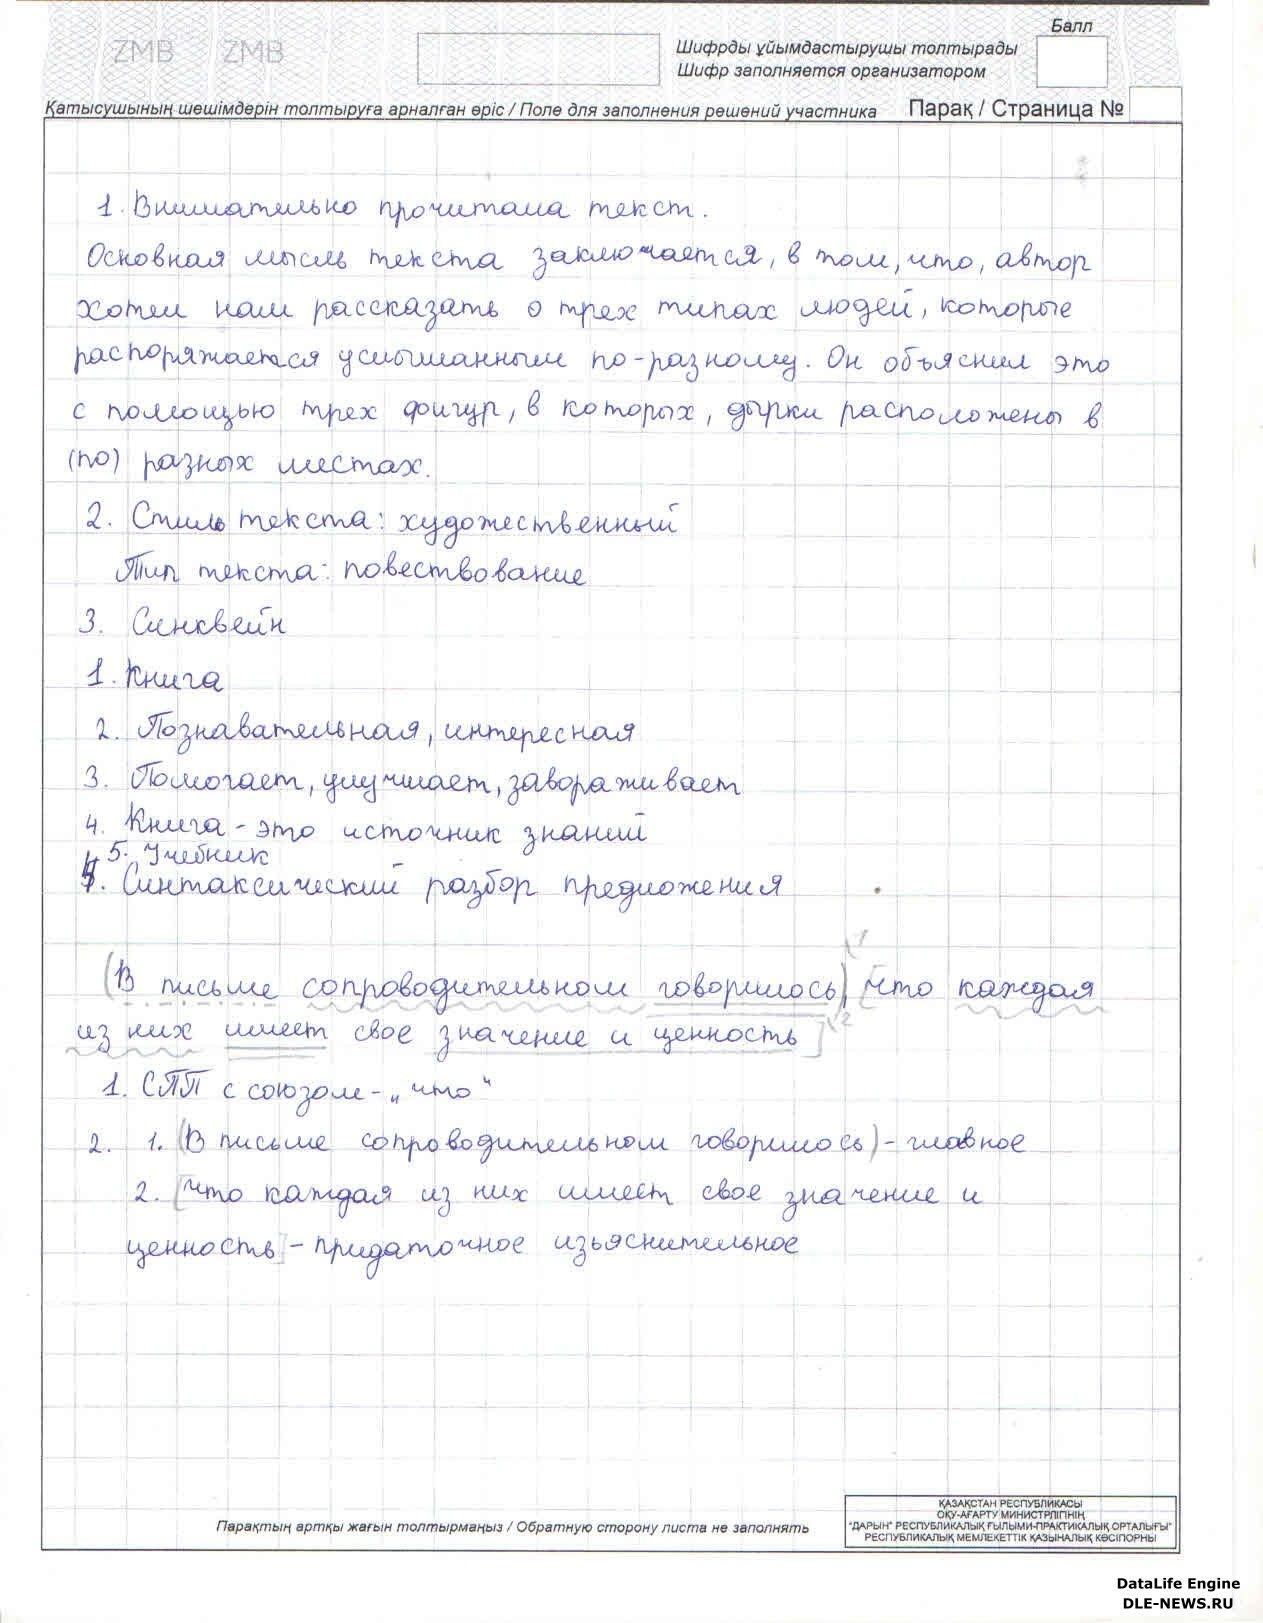 ZMB ZMB
Балл
Шифрды ұйымдастырушы толтырады
Шифр заполняется организатором
Қатысушының шешімдерін толтыруға арналған өріс / Поле для заполнения решений участника Парақ / Страница №
1. Внимательно прочитала текст.
Основная мысль текста заключается, в том, что, автор
хотел нам рассказать о трех типах людей, которые
распоряжается услышанным по-разному. Он объяснил это
с помощью трех фигур, в которых, дырки расположены в
(по) разных местах.
2. Стиль текста: художественный
Тип текста: повествование
3. Синквейн
1. Книга
2. Познавательная, интересная
3. Помогает, улучшает, завораживает
4. Книга - это источник знаний
5. Учебник
4. Синтаксический разбор предложения
(В письме сопроводительном говорилось)1, [что каждая
из них имеет свое значение и ценность]2
1. СПП с союзом - „что“
2. 1. (В письме сопроводительном говорилось) - главное
2. [что каждая из них имеет свое значение и
ценность] - придаточное изьяснительное
Парақтың артқы жағын толтырмаңыз / Обратную сторону листа не заполнять
ҚАЗАҚСТАН РЕСПУБЛИКАСЫ
ОҚУ-АҒАРТУ МИНИСТРЛІГІНІҢ
"ДАРЫН" РЕСПУБЛИКАЛЫҚ ҒЫЛЫМИ-ПРАКТИКАЛЫҚ ОРТАЛЫҒЫ"
РЕСПУБЛИКАЛЫҚ МЕМЛЕКЕТТІК ҚАЗЫНАЛЫҚ КӘСІПОРНЫ
DataLife Engine
DLE-NEWS.RU